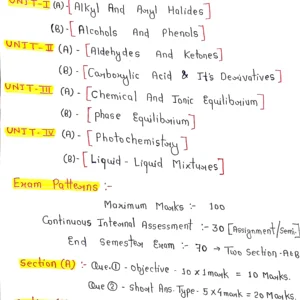 UNIT-I (A)-[Alkyl And Aryl Halides]
(B)-[Alcohols And Phenols]
UNIT-II (A)-[Aldehydes And Ketones]
(B)-[Carboxylic Acid & It's Derivatives]
UNIT-III (A)-[Chemical And Ionic Equilibrium]
(B)-[phase Equilibrium]
UNIT-IV (A)-[Photochemistry]
(B)-[Liquid-Liquid Mixtures]
Exam Patterns :-
Maximum Marks :- 100
Continuous Internal Assessment :- 30 [Assignment/Semi-
End Semester Exam :- 70 → Two Section - A&B
Section (A) :- Que.① - Objective - 10 x 1 mark = 10 Marks.
Que ② - short Ans. Type - 5 x 4 mark = 20 Marks.